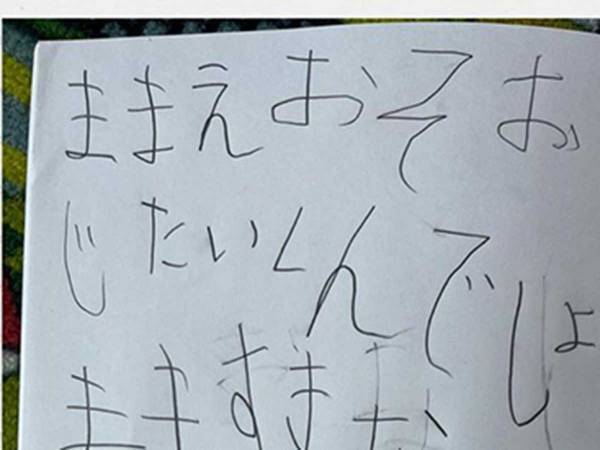 ままえおそお
じたいくんでしょ
まます